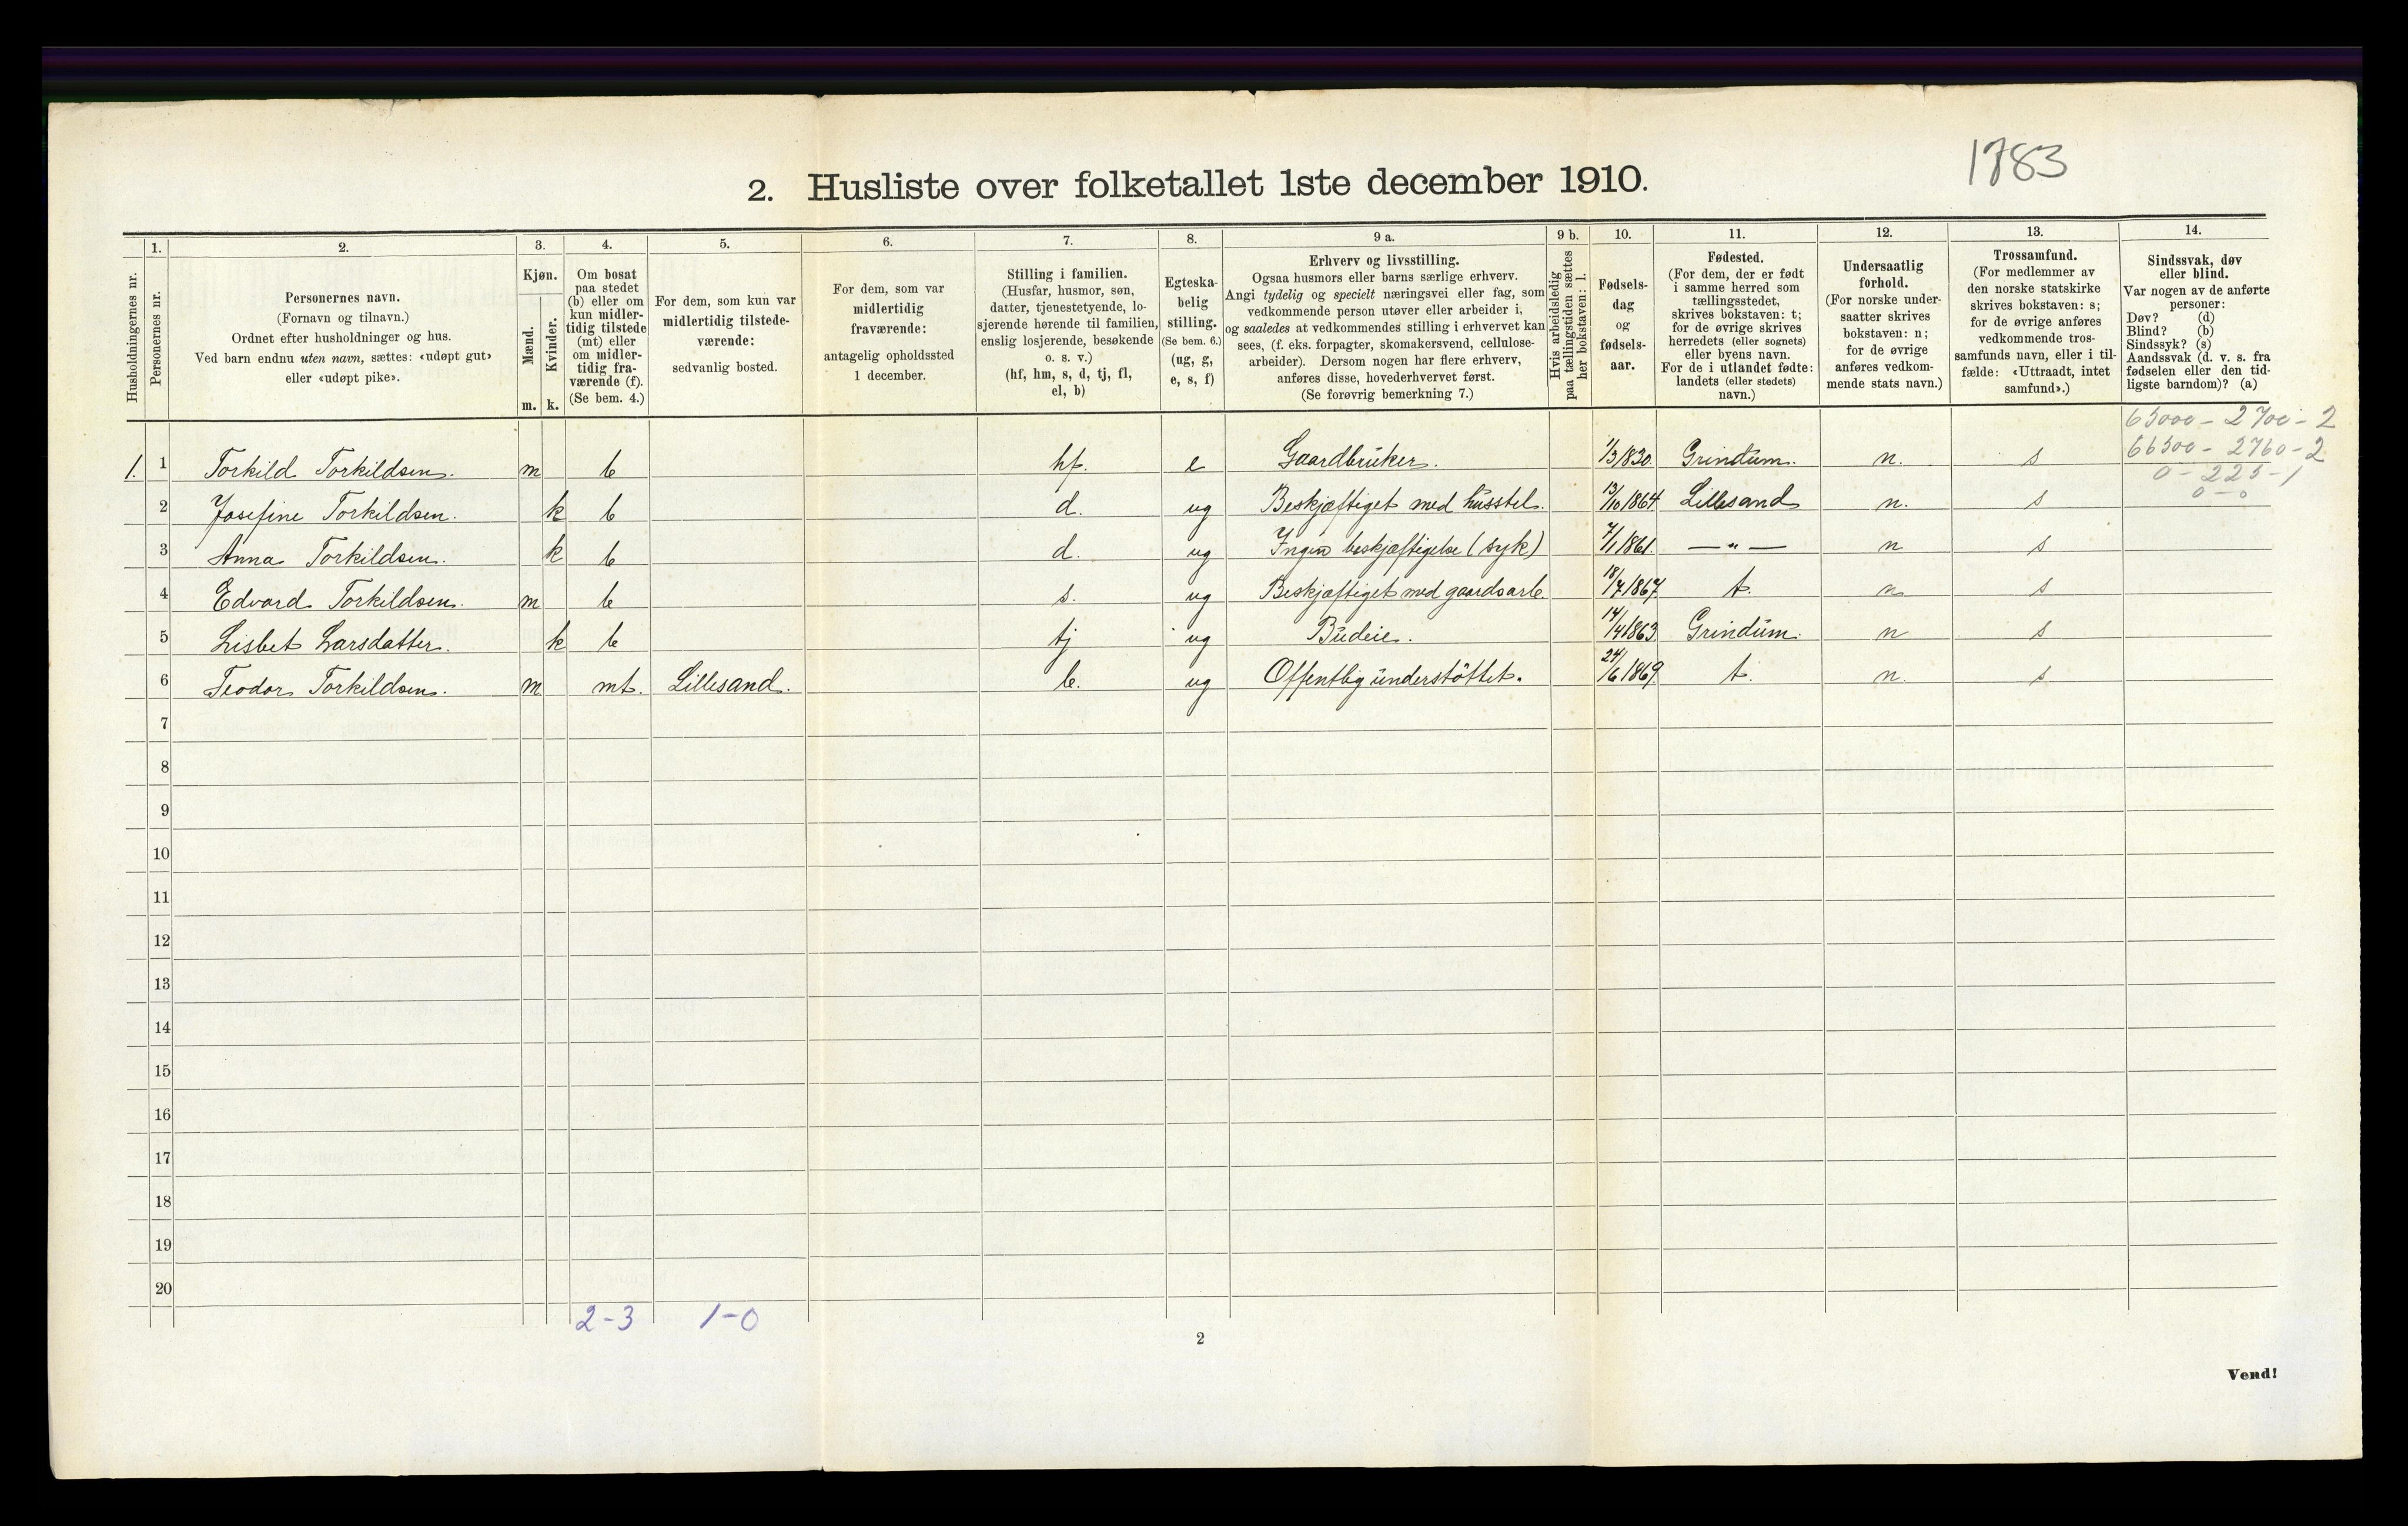 1783
2. Husliste over folketallet 1ste december 1910.
Husholdningernes nr.
1.
Personernes nr.
2.
Personernes navn.
(Fornavn og tilnavn.)
Ordnet efter husholdninger og hus.
Ved barn endnu uten navn, sættes: «udøpt gut»
eller «udøpt pike».
3.
Kjøn.
Mænd.
Kvinder.
m. k.
4.
Om bosat
paa stedet
(b) eller om
kun midler-
tidig tilstede
(mt) eller
om midler-
tidig fra-
værende (f).
(Se bem. 4.)
5.
For dem, som kun var
midlertidig tilstede-
værende:
sedvanlig bosted.
6.
For dem, som var
midlertidig
fraværende:
antagelig opholdssted
1 december.
7.
Stilling i familien.
(Husfar, husmor, søn,
datter, tjenestetyende, lo-
sjerende hørende til familien,
enslig losjerende, besøkende
o. s. v.)
(hf, hm, s, d, tj, fl,
el, b)
8.
Egteska-
belig
stilling.
(Se bem. 6.)
(ug, g,
e, s, f)
9 a.
Erhverv og livsstilling.
Ogsaa husmors eller barns særlige erhverv.
Angi tydelig og specielt næringsvei eller fag, som
vedkommende person utøver eller arbeider i,
og saaledes at vedkommendes stilling i erhvervet kan
sees, (f. eks. forpagter, skomakersvend, cellulose-
arbeider). Dersom nogen har flere erhverv,
anføres disse, hovederhvervet først.
(Se forøvrig bemerkning 7.)
9 b.
Hvis arbeidsledig
paa tællingstiden sættes
her bokstaven: l.
10.
Fødsels-
dag
og
fødsels-
aar.
11.
Fødested.
(For dem, der er født
i samme herred som
tællingsstedet,
skrives bokstaven: t;
for de øvrige skrives
herredets (eller sognets)
eller byens navn.
For de i utlandet fødte:
landets (eller stedets)
navn.)
12.
Undersaatlig
forhold.
(For norske under-
saatter skrives
bokstaven: n;
for de øvrige
anføres vedkom-
mende stats navn.)
13.
Trossamfund.
(For medlemmer av
den norske statskirke
skrives bokstaven: s;
for de øvrige anføres
vedkommende tros-
samfunds navn, eller i til-
fælde: «Uttraadt, intet
samfund».)
14.
Sindssvak, døv
eller blind.
Var nogen av de anførte
personer:
Døv? (d)
Blind? (b)
Sindssyk? (s)
Aandssvak (d. v. s. fra
fødselen eller den tid-
ligste barndom)? (a)
65000 - 2700 - 2
66500 - 2760 - 2
0 - 225 - 1
0 - 0
1. 1 Torkild Torkildsen. m b hf. e Gaardbruker. 1/3 1830. Grindum. n. s
2 Josefine Torkildsen. k b d. ug Beskjæftiget med husstel. 13/10 1864. Lillesand n. s
3 Anna Torkildsen. k b d. ug Ingen beskjæftigelse (syk) 7/1 1861. — " — n s
4 Edvard Torkildsen. m b s. ug Beskjæftiget med gaardsarb. 18/7 1867. t. n s
5 Lisbet Larsdatter. k b tj ug Budeie. 14/4 1863. Grindum. n s
6 Teodor Torkildsen. m mt. Lillesand. b. ug Offentlig understöttet. 24/6 1869. t. n. s
7
8
9
10
11
12
13
14
15
16
17
18
19
20
2-3 1-0
2
Vend!